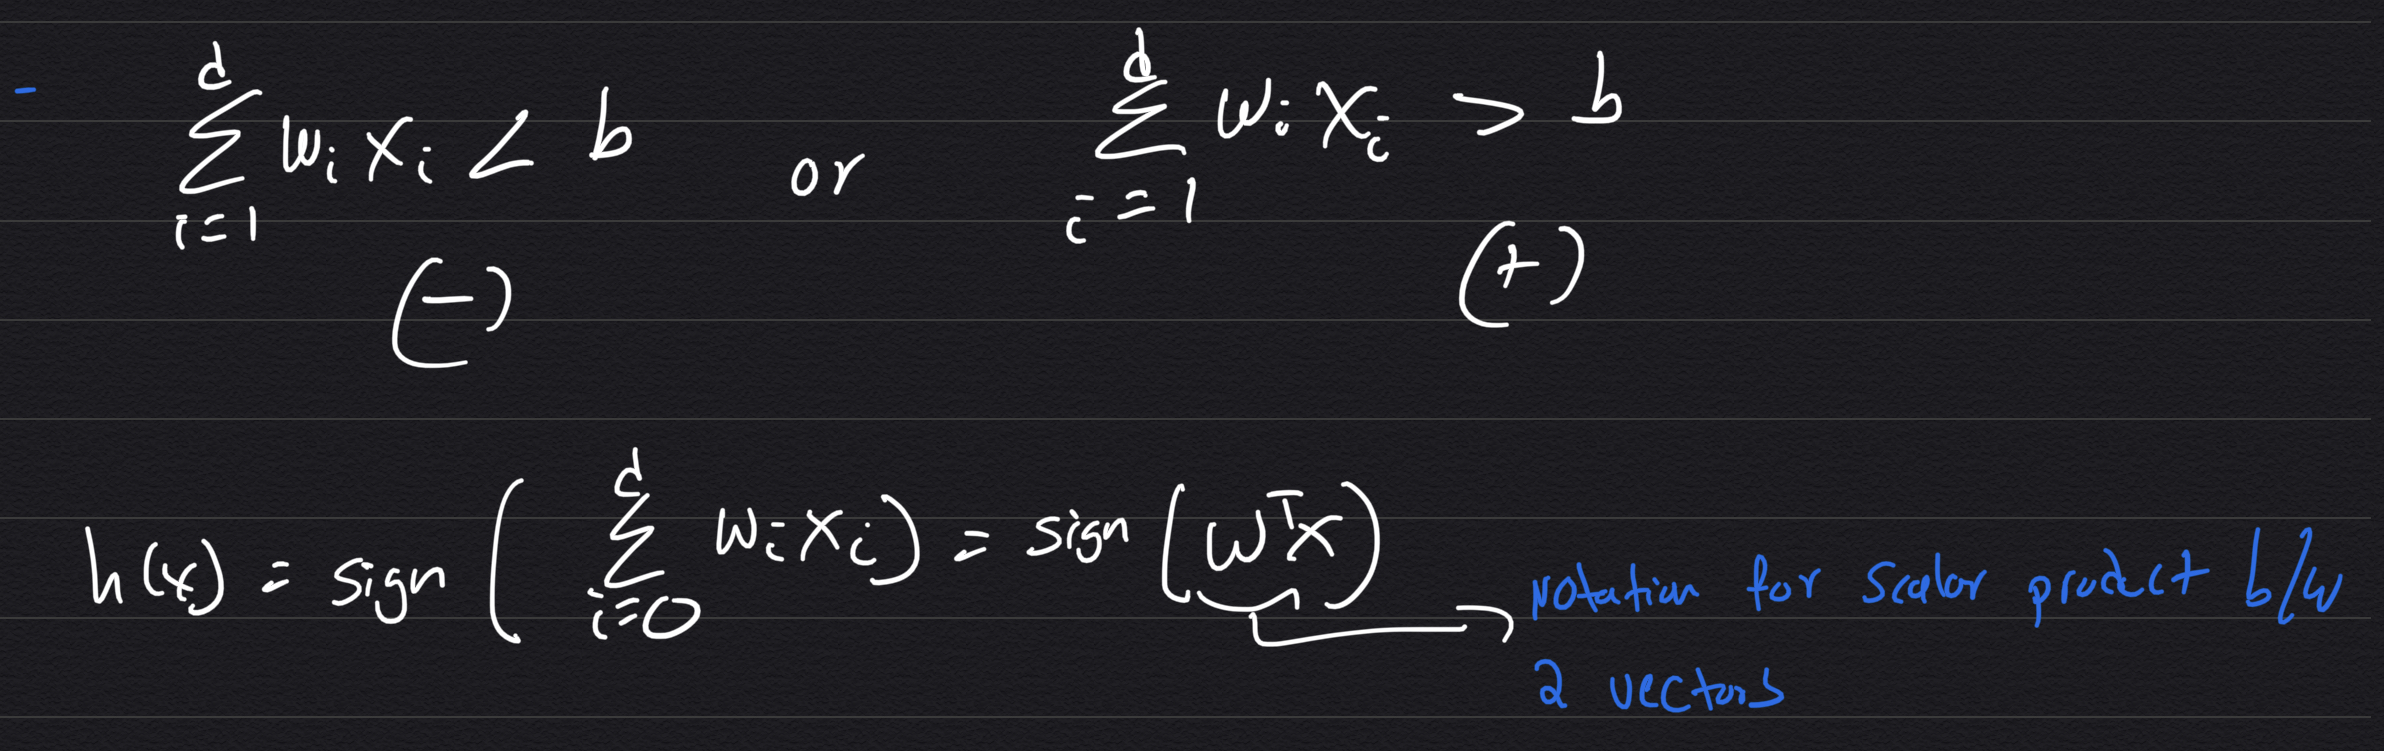 - \sum_{i=1}^{d} w_i x_i < b or \sum_{i=1}^{d} w_i x_i > b
(-) (+)
h(x) = sign ( \sum_{i=0}^{d} w_i x_i ) = sign ( w^T x ) → Notation for scalar product b/w
2 vectors